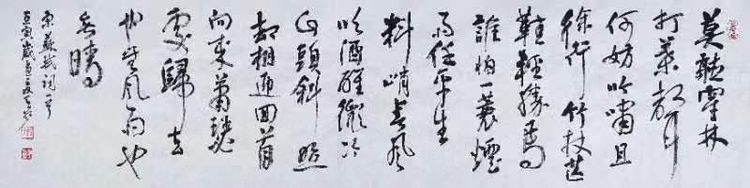 莫聽穿林
打葉聲
何妨吟嘯且
徐行竹杖芒
鞋輕勝馬
誰怕一蓑煙
雨任平生
料峭春風
吹酒醒微冷
山頭斜照
却相迎回首
向來蕭瑟
處歸去
也無風雨也
無晴
蘇軾詞
寅歲